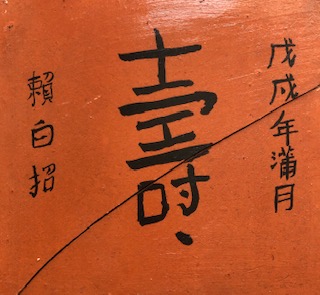 戊戌年滿月
壽
賴白招